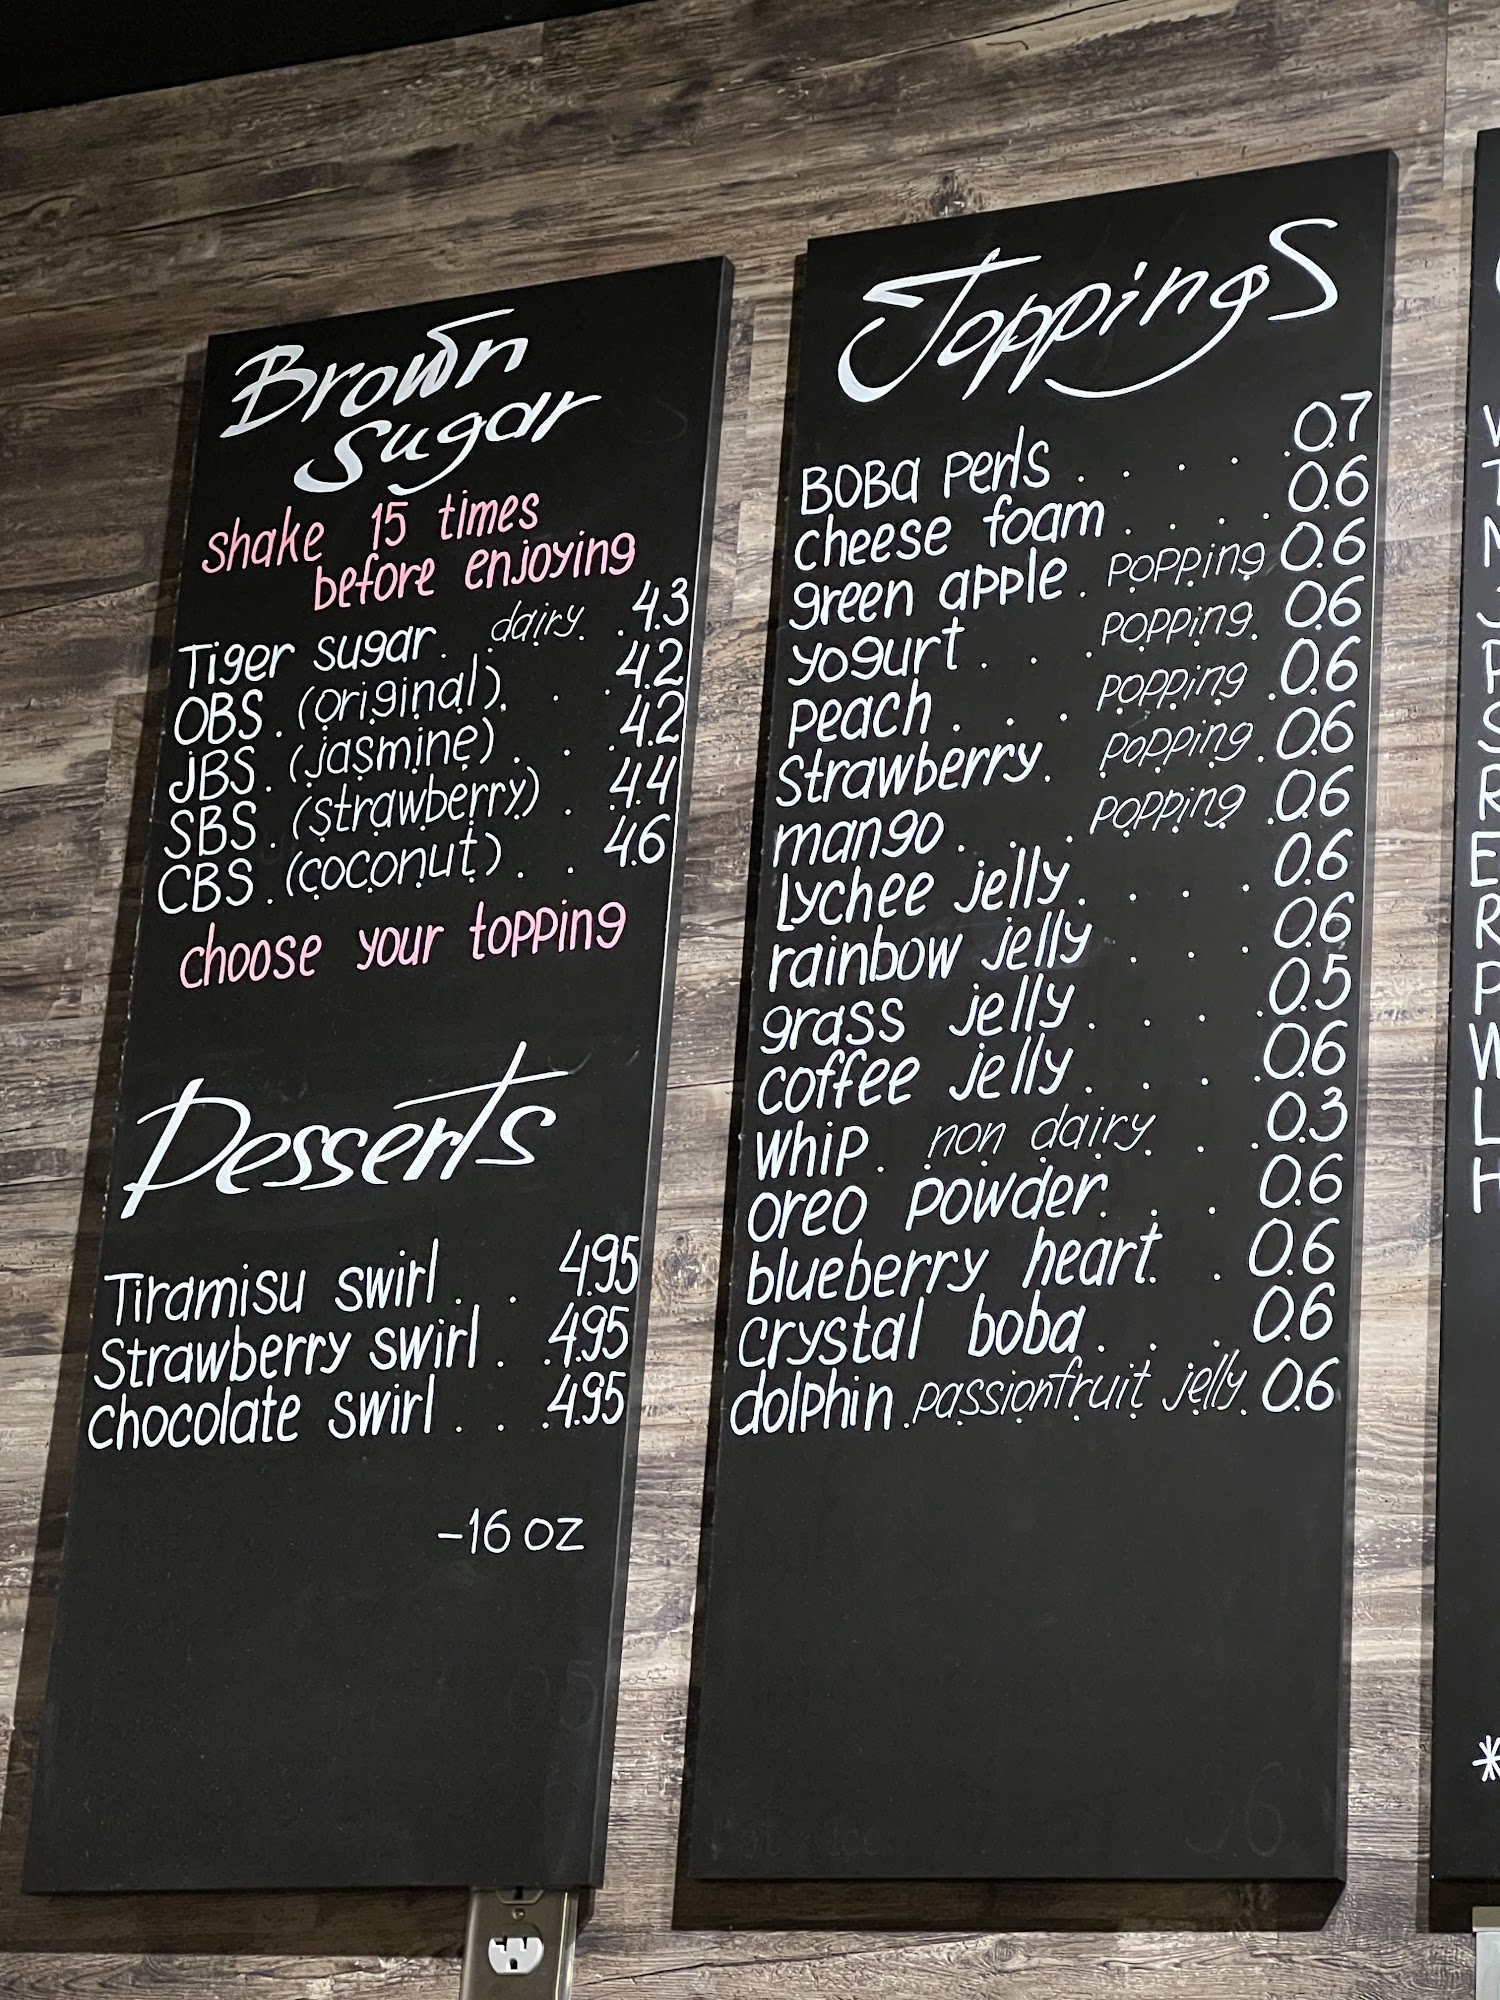 Brown
sugar
shake 15 times
before enjoying
Tiger sugar. dairy . .4.3
OBS . (original). . . 4.2
JBS . (jasmine) . . .4.2
SBS . (strawberry) . .4.4
CBS . (coconut) . . 4.6
choose your topping
Desserts
Tiramisu swirl . . 4.95
Strawberry swirl . .4.95
chocolate swirl . . .4.95
-16 oz
Toppings
BOBa perls . . . . .0.7
cheese foam . . . .0.6
green apple . popping 0.6
yogurt . . . popping. 0.6
peach . . . popping .0.6
strawberry. popping .0.6
mango . . . popping .0.6
Lychee jelly . . . .0.6
rainbow jelly . . . 0.6
grass jelly . . . .0.5
coffee jelly . . . .0.6
whip . non dairy . .0.3
oreo powder. . . 0.6
blueberry heart. . 0.6
crystal boba . . .0.6
dolphin .passionfruit jelly. 0.6